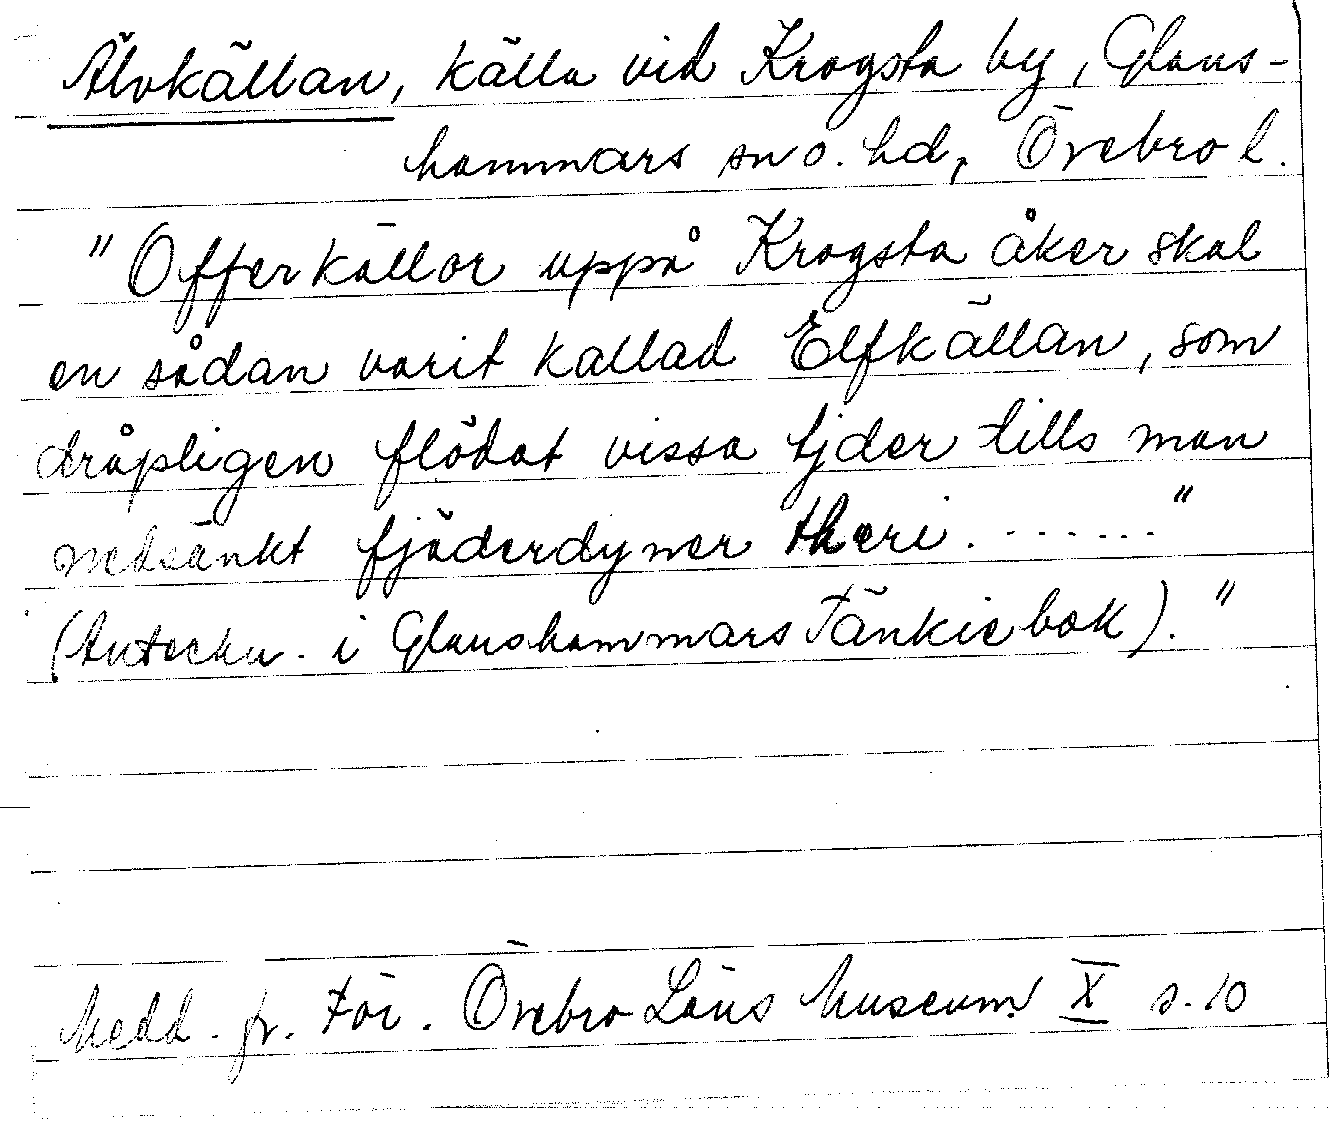 Älvkällan, källa vid Krogsta by, Glans-
hammars sn o. hd, Örebro l.
"Offerkällor uppå Krogsta åker skal
en sådan varit kallad Elfkällan, som
dråpligen flödat vissa tjder tills man
nedsänkt fjäderdyner theri. ......."
(Anteckn. i Glanshammars Tänkiebok)."
Medd. fr. För. Örebro Läns Museum X s. 10